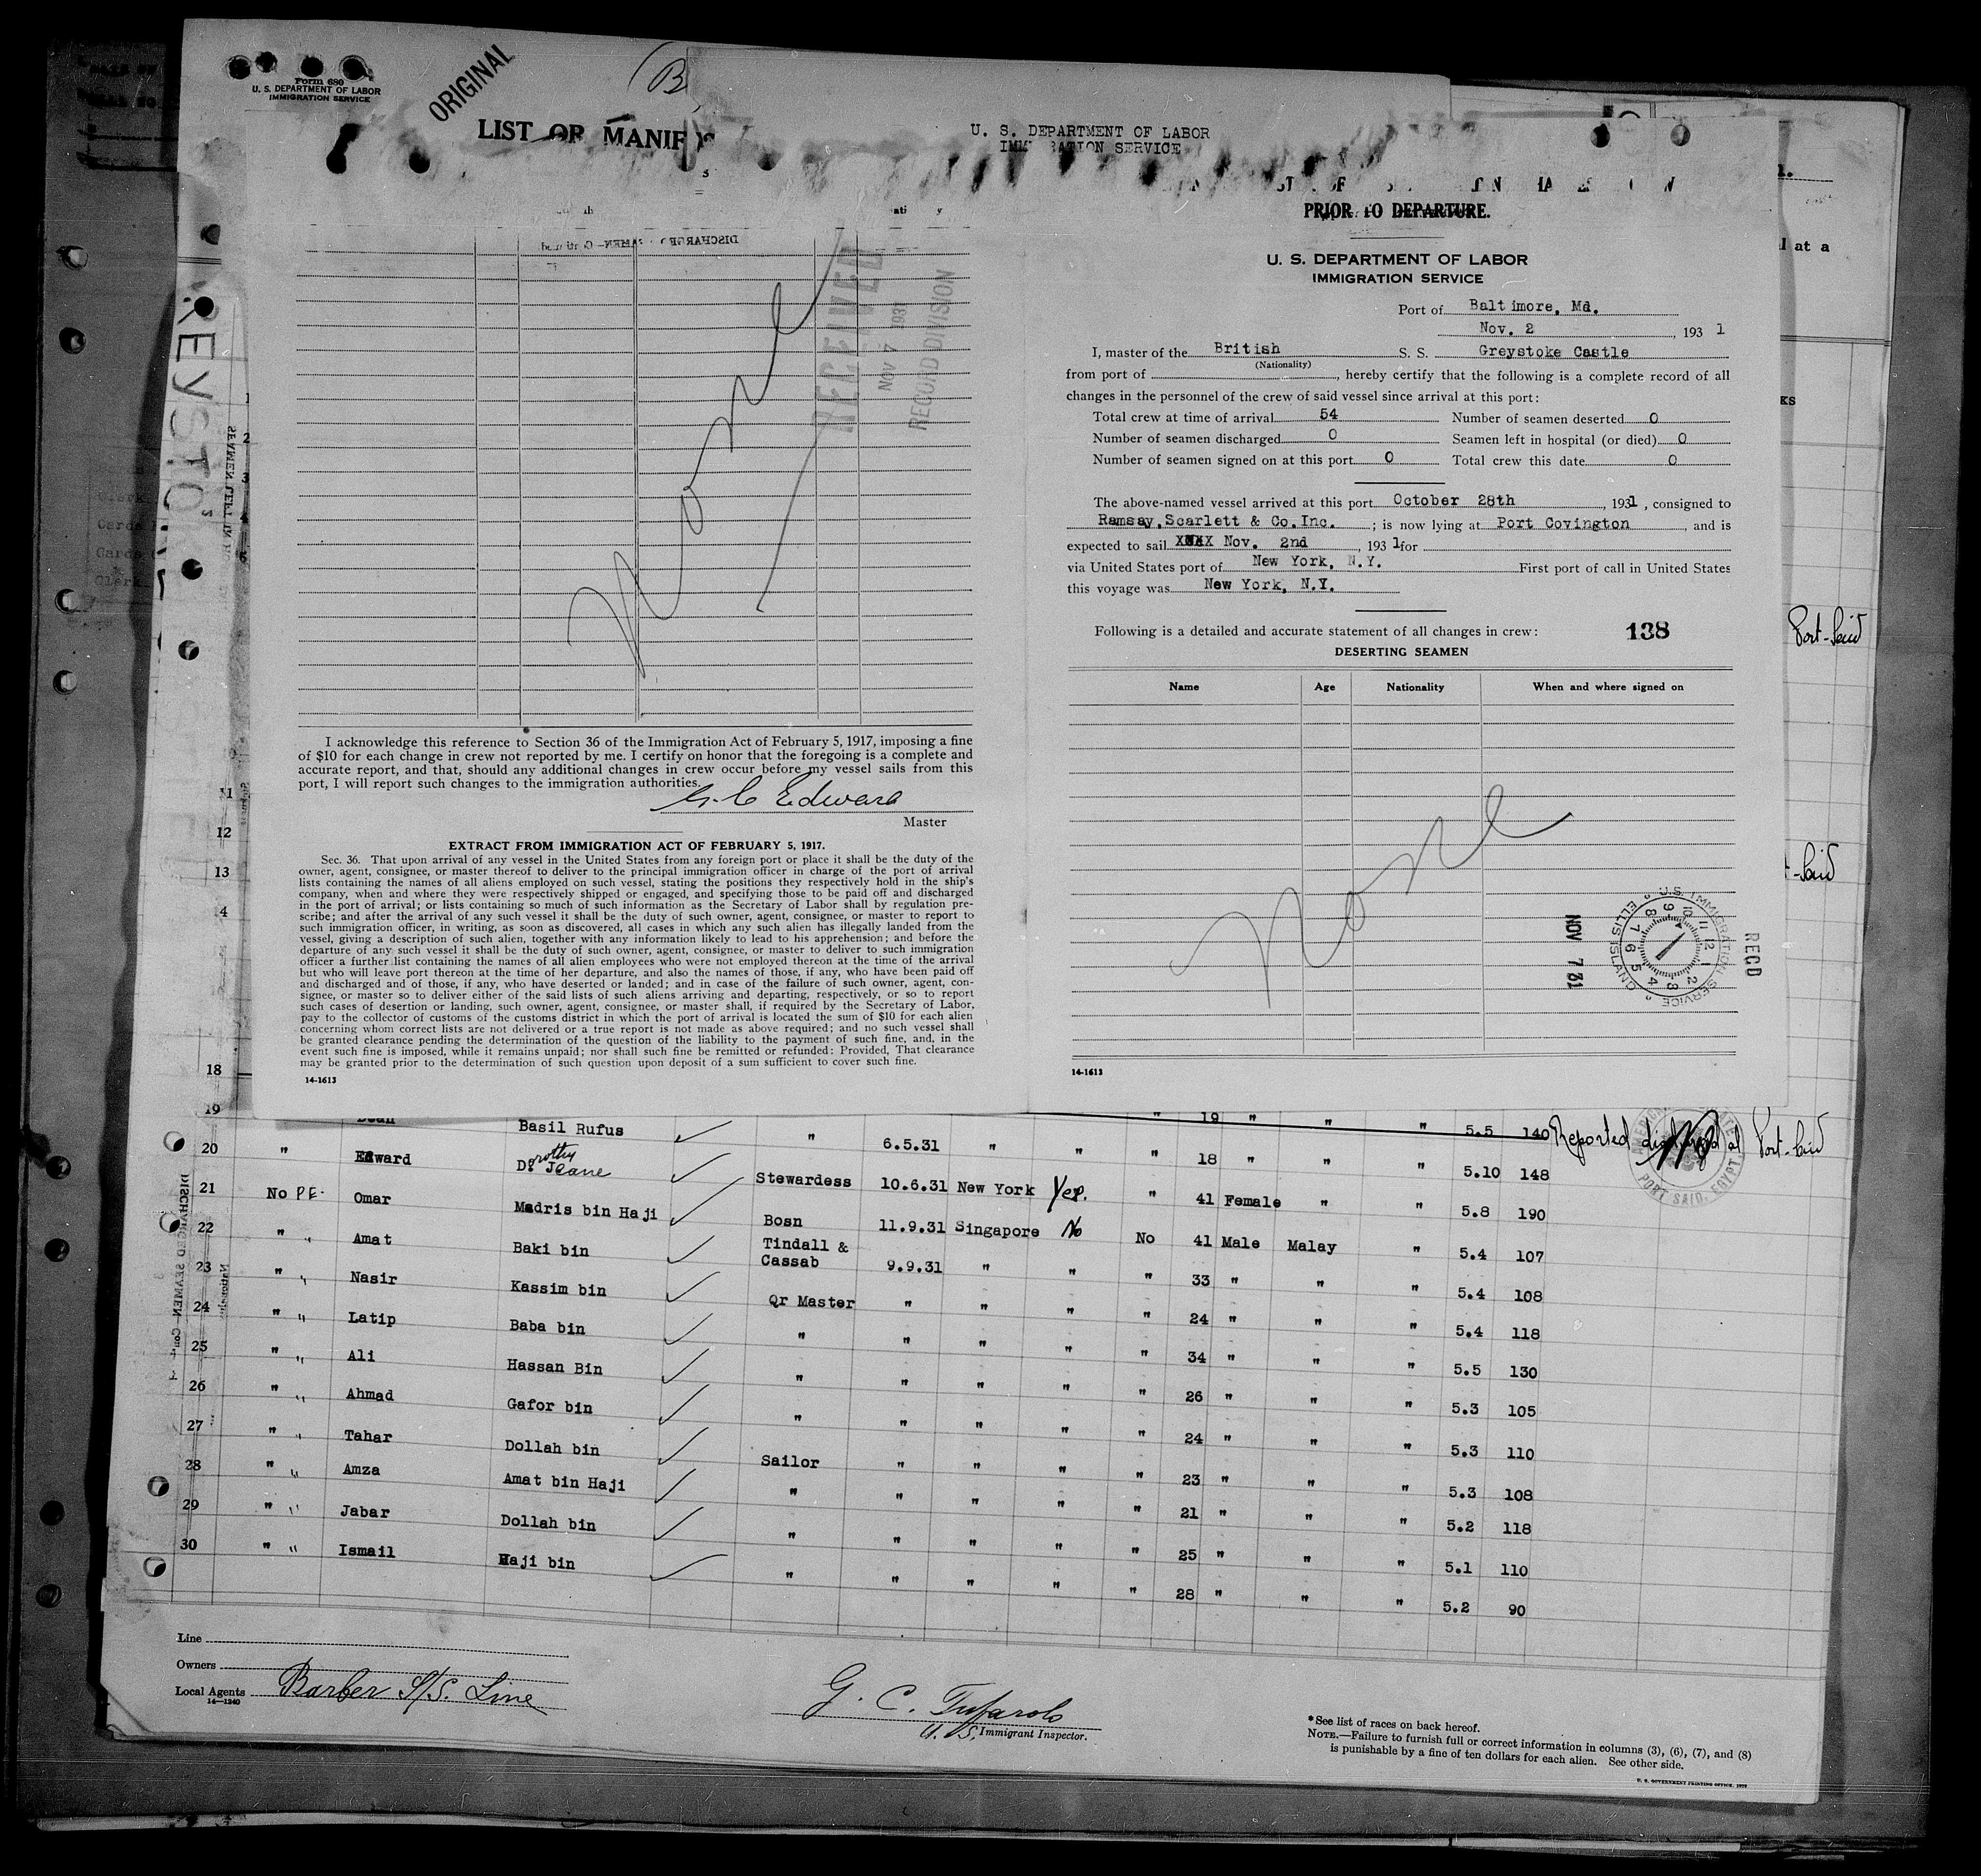 Form 680
U. S. DEPARTMENT OF LABOR
IMMIGRATION SERVICE
ORIGINAL
(B
LIST OR MANIF
U. S. DEPARTMENT OF LABOR
SERVICE
PRIOR TO DEPARTURE.
DISCHARGED
RECEIVED
NOV 7 1931
RECORD DIVISION
None
I acknowledge this reference to Section 36 of the Immigration Act of February 5, 1917, imposing a fine
of $10 for each change in crew not reported by me. I certify on honor that the foregoing is a complete and
accurate report, and that, should any additional changes in crew occur before my vessel sails from this
port, I will report such changes to the immigration authorities.
Master
EXTRACT FROM IMMIGRATION ACT OF FEBRUARY 5, 1917.
Sec. 36. That upon arrival of any vessel in the United States from any foreign port or place it shall be the duty of the
owner, agent, consignee, or master thereof to deliver to the principal immigration officer in charge of the port of arrival
lists containing the names of all aliens employed on such vessel, stating the positions they respectively hold in the ship's
company, when and where they were respectively shipped or engaged, and specifying those to be paid off and discharged
in the port of arrival; or lists containing so much of such information as the Secretary of Labor shall by regulation pre-
scribe; and after the arrival of any such vessel it shall be the duty of such owner, agent, consignee, or master to report to
such immigration officer, in writing, as soon as discovered, all cases in which any such alien has illegally landed from the
vessel, giving a description of such alien, together with any information likely to lead to his apprehension; and before the
departure of any such vessel it shall be the duty of such owner, agent, consignee, or master to deliver to such immigration
officer a further list containing the names of all alien employees who were not employed thereon at the time of the arrival
but who will leave port thereon at the time of her departure, and also the names of those, if any, who have been paid off
and discharged and of those, if any, who have deserted or landed; and in case of the failure of such owner, agent, con-
signee, or master so to deliver either of the said lists of such aliens arriving and departing, respectively, or so to report
such cases of desertion or landing, such owner, agent, consignee, or master shall, if required by the Secretary of Labor,
pay to the collector of customs of the customs district in which the port of arrival is located the sum of $10 for each alien
concerning whom correct lists are not delivered or a true report is not made as above required; and no such vessel shall
be granted clearance pending the determination of the question of the liability to the payment of such fine, and, in the
event such fine is imposed, while it remains unpaid; nor shall such fine be remitted or refunded: Provided, That clearance
may be granted prior to the determination of such question upon deposit of a sum sufficient to cover such fine.
14-1613
U. S. DEPARTMENT OF LABOR
IMMIGRATION SERVICE
Port of Baltimore, Md.
Nov. 2, 1931
I, master of the British S. S. Greystoke Castle
(Nationality)
from port of , hereby certify that the following is a complete record of all
changes in the personnel of the crew of said vessel since arrival at this port:
Total crew at time of arrival 54 Number of seamen deserted 0
Number of seamen discharged 0 Seamen left in hospital (or died) 0
Number of seamen signed on at this port 0 Total crew this date 0
The above-named vessel arrived at this port October 28th, 1931, consigned to
Ramsay, Scarlett & Co. Inc.; is now lying at Port Covington, and is
expected to sail Nov. 2nd, 1931 for
via United States port of New York, N.Y. First port of call in United States
this voyage was New York, N.Y.
Following is a detailed and accurate statement of all changes in crew: 138
DESERTING SEAMEN
Name Age Nationality When and where signed on
None
U.S. IMMIGRATION SERVICE ELLIS ISLAND
RECD
NOV 7 31
14-1613
l at a
KS
Port-Said
t-Said
11
12
13
18
19 Dean Basil Rufus " 6.5.31 " " " 19 " " " 5.5 140 Reported discharged at Port-Said
PORT SAID, EGYPT
20 " Edward Dorothy Jeane Stewardess 10.6.31 New York Yes. " 18 " " " 5.10 148
21 No PE. Omar Madris bin Haji Bosn 11.9.31 Singapore No " 41 Female " " 5.8 190
22 " " Amat Baki bin Tindall & Cassab 9.9.31 " " No 41 Male Malay " 5.4 107
23 " " Nasir Kassim bin Qr Master " " " " 33 " " " 5.4 108
24 " " Latip Baba bin " " " " " 24 " " " 5.4 118
25 " " Ali Hassan Bin " " " " " 34 " " " 5.5 130
26 " " Ahmad Gafor bin " " " " " 26 " " " 5.3 105
27 " " Tahar Dollah bin Sailor " " " " 24 " " " 5.3 110
28 " " Amza Amat bin Haji " " " " " 23 " " " 5.3 108
29 " " Jabar Dollah bin " " " " " 21 " " " 5.2 118
30 " " Ismail Haji bin " " " " " 25 " " " 5.1 110
28 " " " 5.2 90
Line
Owners
Local Agents Barber S/S. Line
14—1240
G. C.
U. S. Immigrant Inspector.
*See list of races on back hereof.
NOTE.—Failure to furnish full or correct information in columns (3), (6), (7), and (8)
is punishable by a fine of ten dollars for each alien. See other side.
U. S. GOVERNMENT PRINTING OFFICE